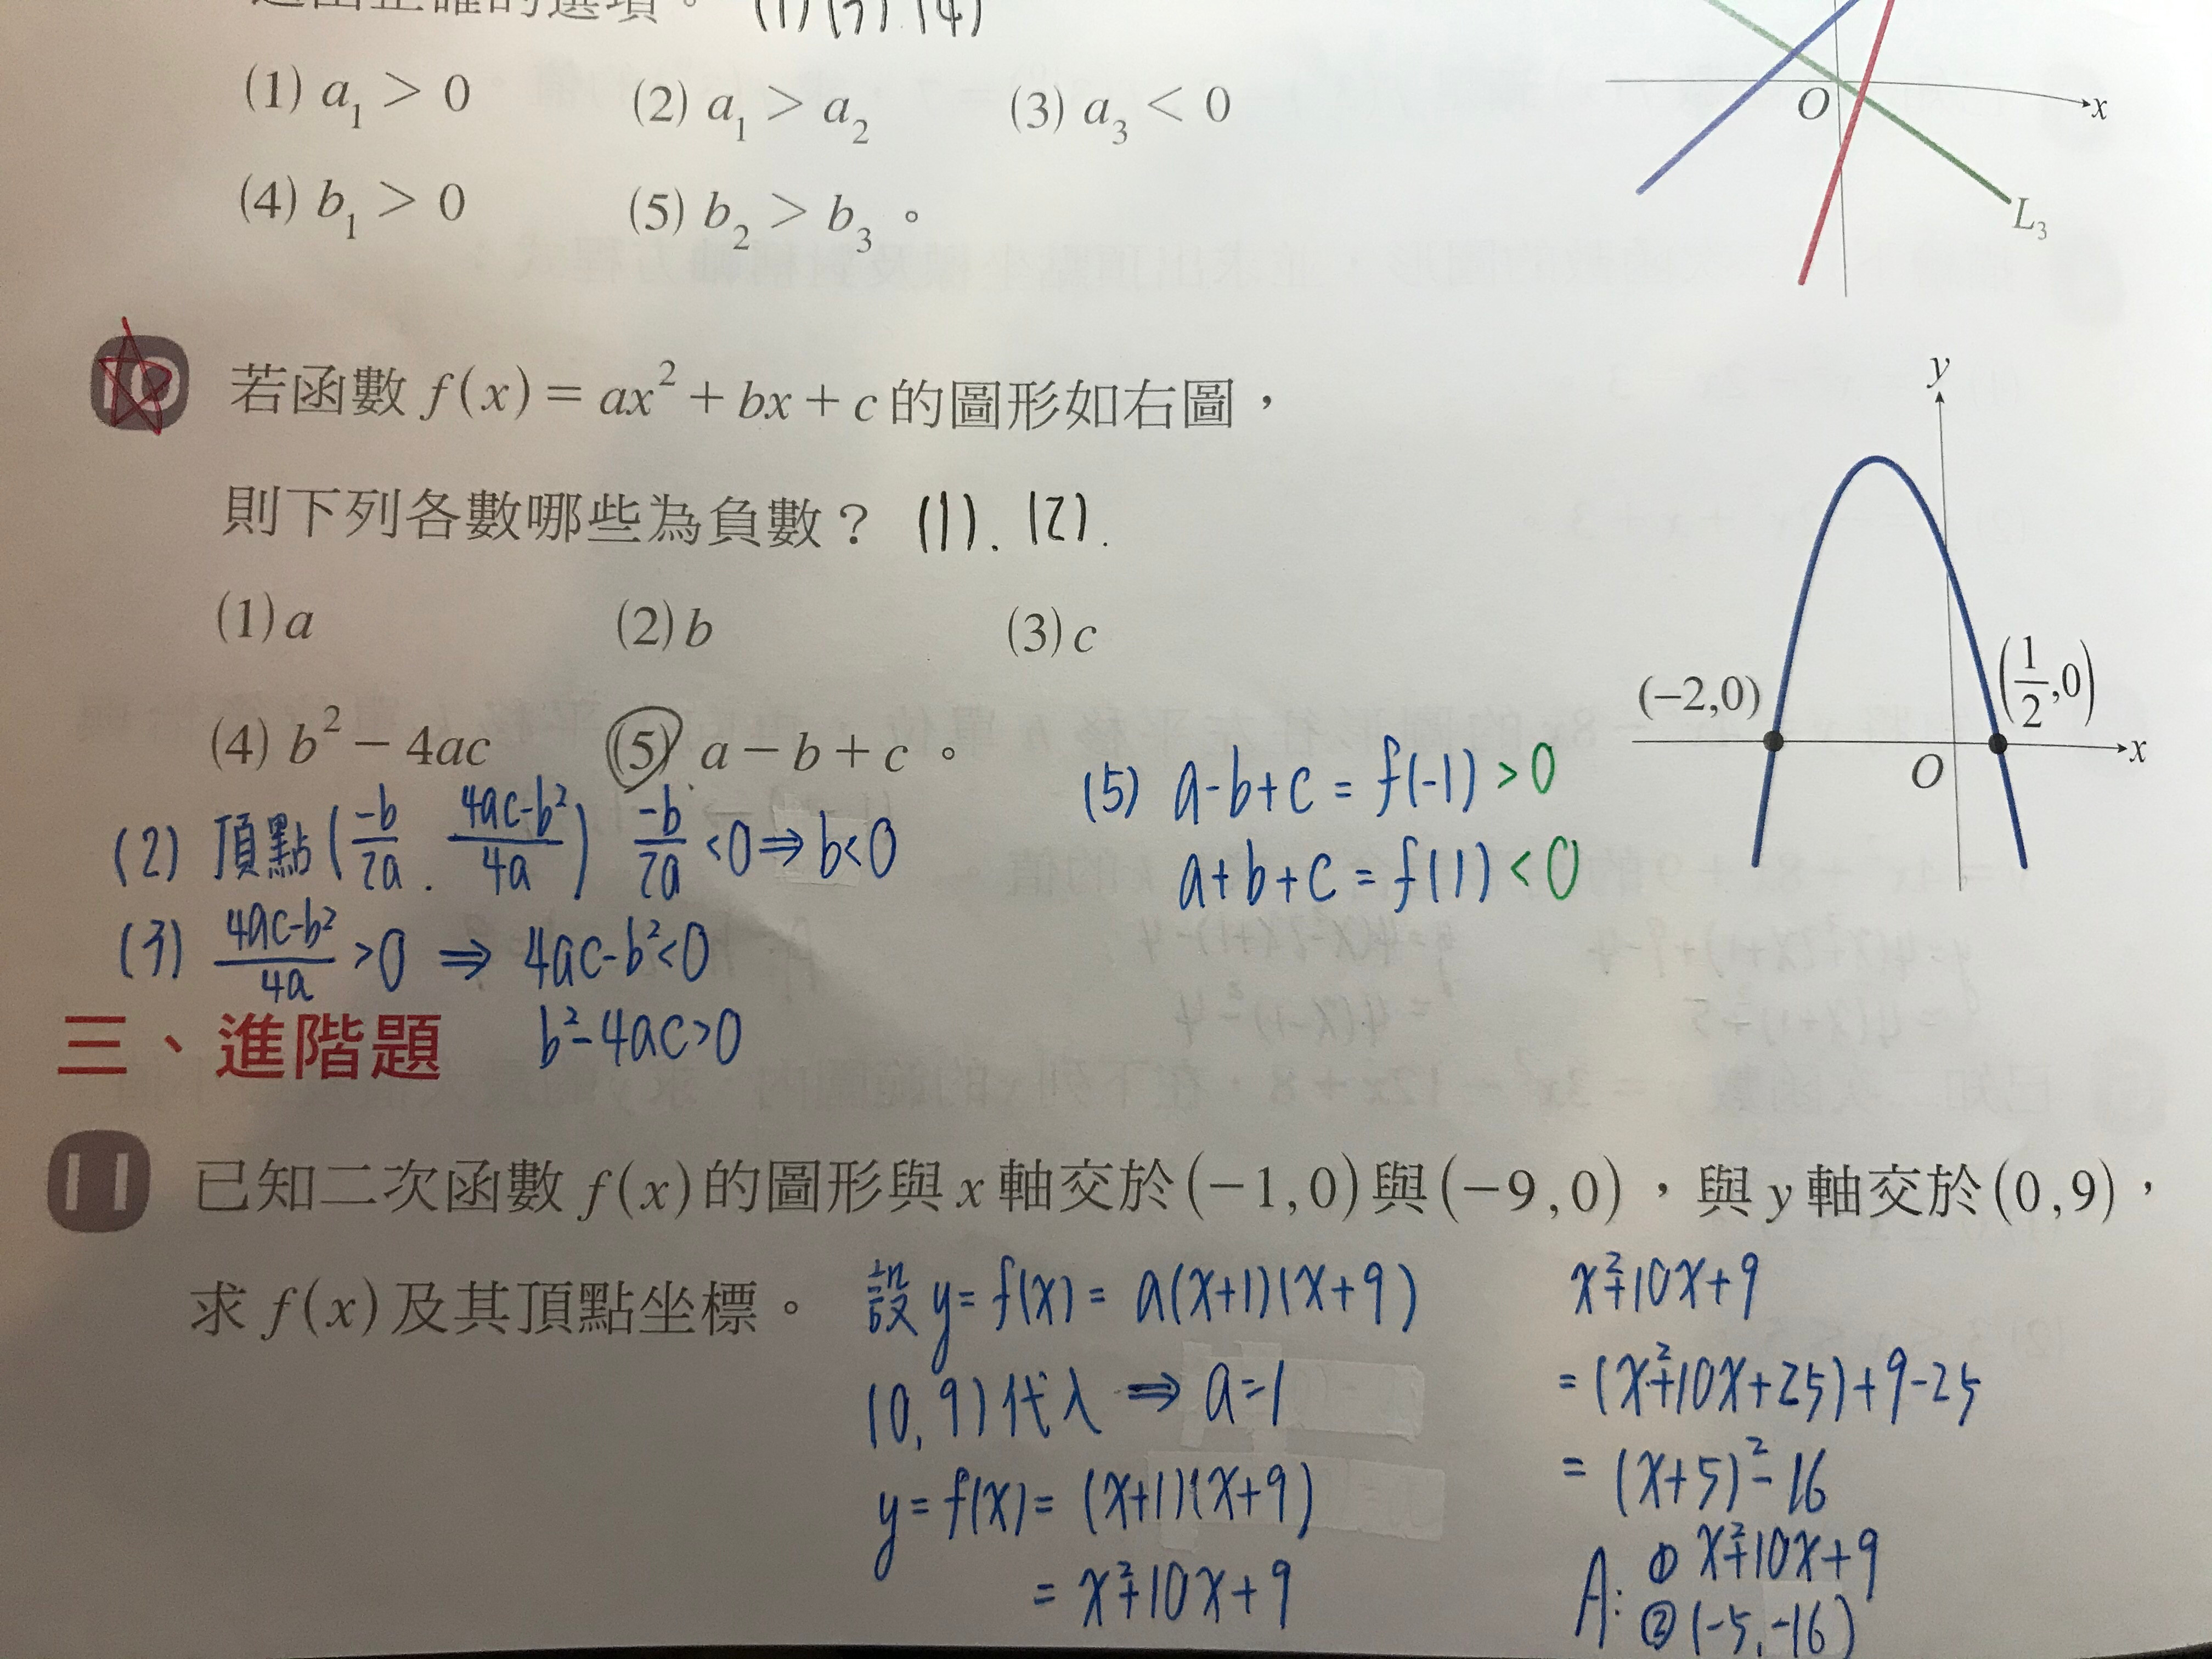 選出正確的選項。 (1)(3).(4)
(1) a₁ > 0 (2) a₁ > a₂ (3) a₃ < 0
(4) b₁ > 0 (5) b₂ > b₃。
O x
L₃
10 若函數 f(x) = ax² + bx + c 的圖形如右圖，
則下列各數哪些為負數？ (1). (2).
(1) a (2) b (3) c
(4) b² − 4ac (5) a − b + c。
y
(−2,0) (1/2,0)
O x
(2) 頂點(-b/2a . 4ac-b²/4a) -b/2a <0⇒b<0
(3) 4ac-b²/4a >0 ⇒ 4ac-b²<0
b²-4ac>0
(5) a-b+c = f(-1) >0
a+b+c = f(1) <0
三、進階題
11 已知二次函數 f(x) 的圖形與 x 軸交於(−1,0)與(−9,0)，與 y 軸交於(0,9)，
求 f(x) 及其頂點坐標。
設 y= f(x) = a(x+1)(x+9)
(0,9)代入 ⇒ a=1
y= f(x) = (x+1)(x+9)
= x²+10x+9
x²+10x+9
= (x²+10x+25)+9-25
= (x+5)²-16
A: ① x²+10x+9
② (-5,-16)